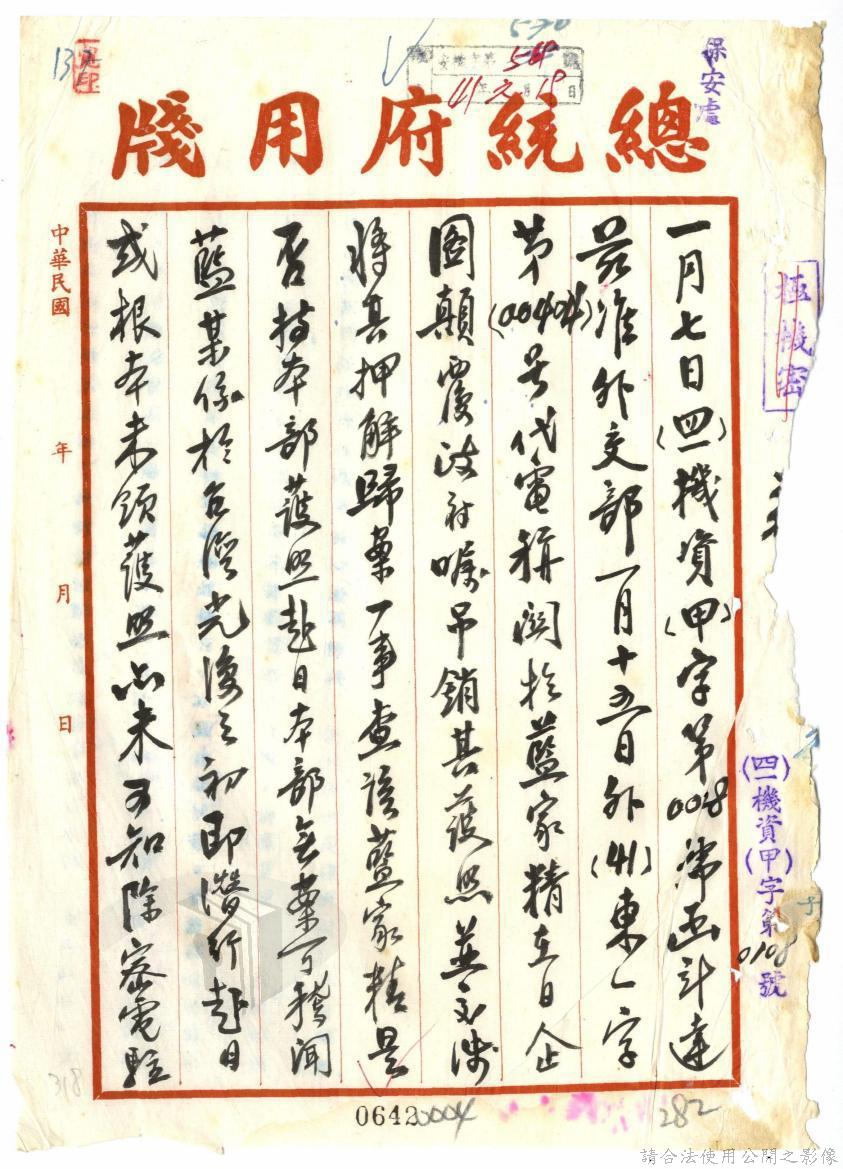 總統府用牋
保安處
極機密
(四一)機資(甲)字第0108號
570
54
41 元 18日
13
一月七日(四一)機資(甲)字第008號函計達
茲准外交部一月十五日外(41)東一字
第(000404)號代電稱關於藍家精在日企
圖顛覆政府囑吊銷其護照並交涉
將其押解歸案一事查該藍家精是
否持本部護照赴日本部無案可稽聞
藍某係於台灣光復之初即潛行赴日
或根本未領護照亦未可知除密電駐
中華民國 年 月 日
318
0642
0004
282
請合法使用公開之影像